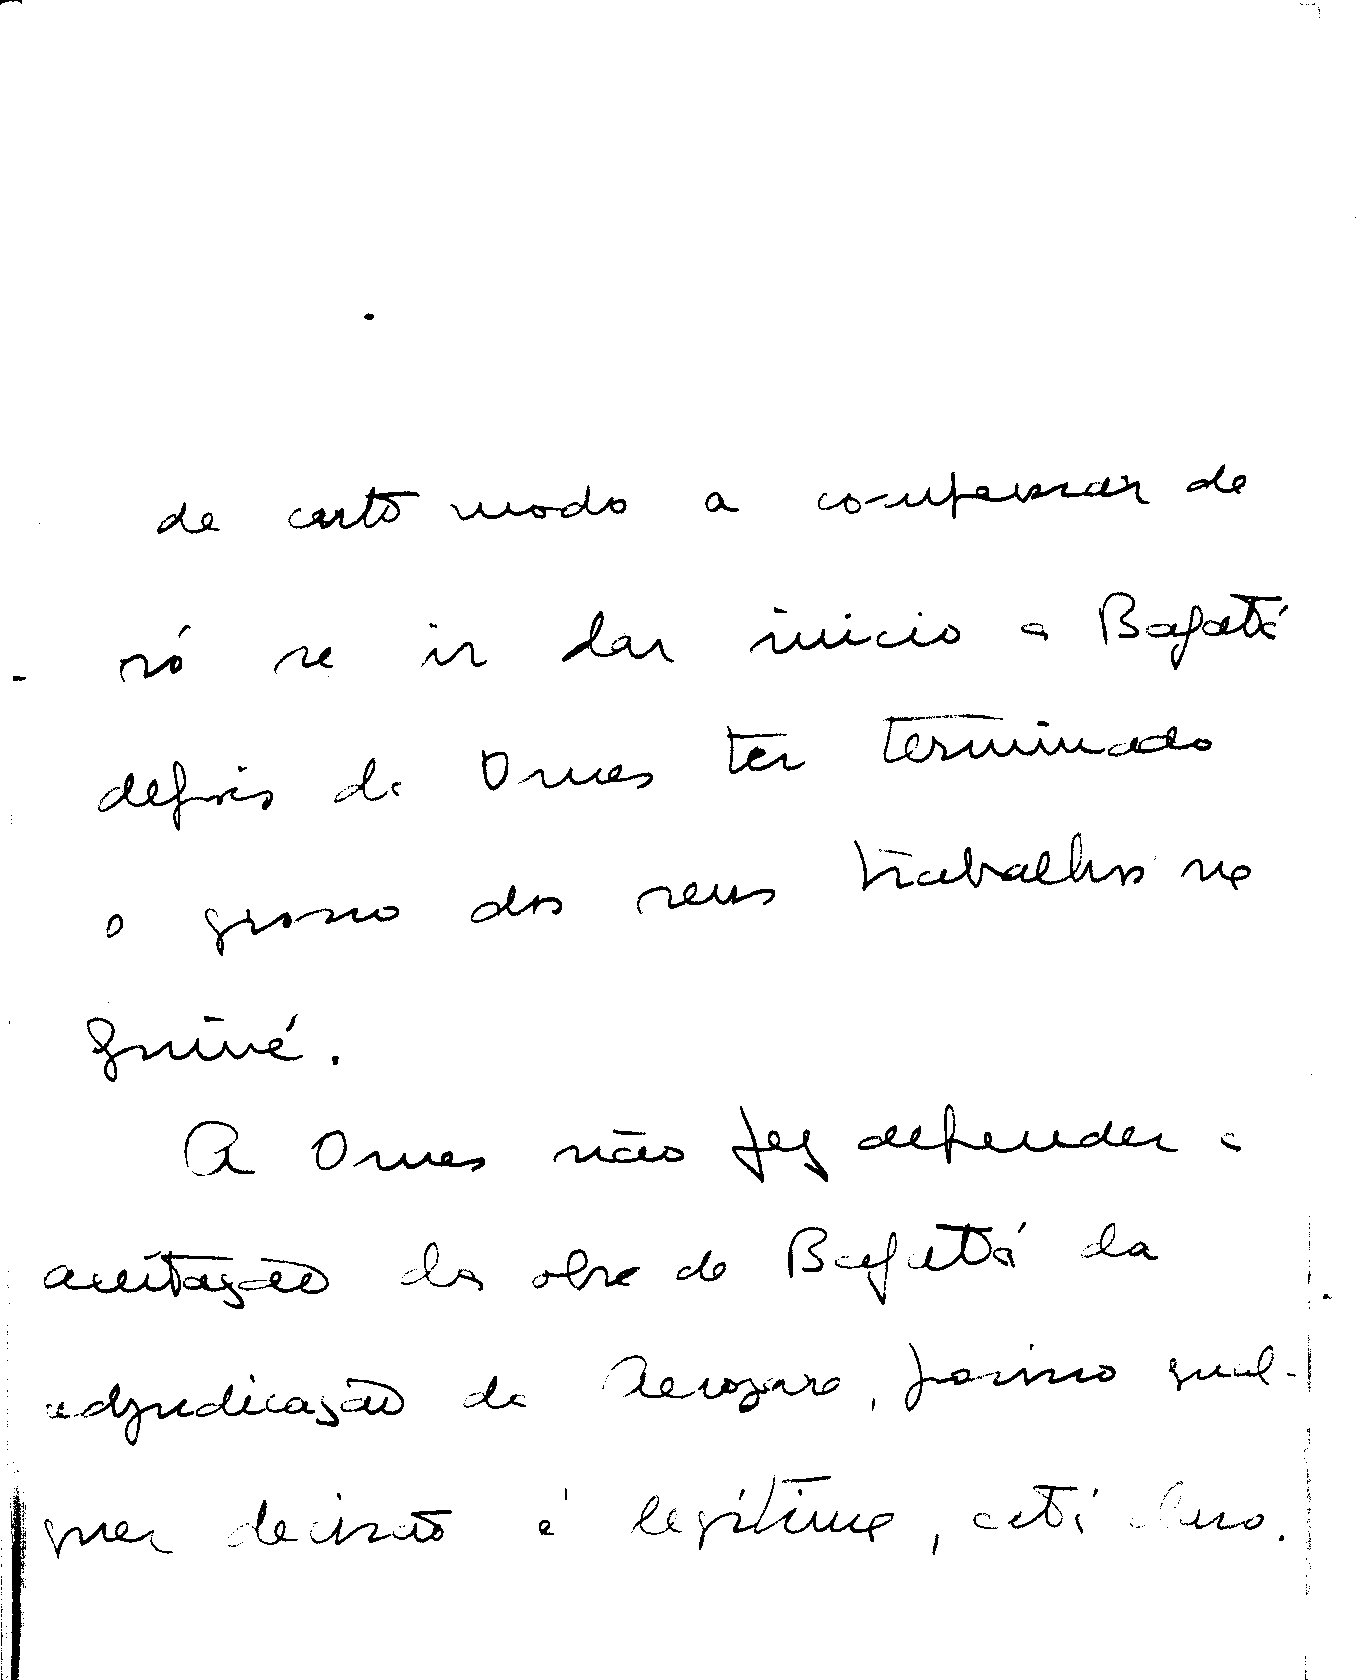 de certo modo a compensar de
só se ir dar inicio a Bafatá
depois da Omes ter terminado
o grosso dos seus trabalhos na
Guiné.
A Omes não fez depender a
aceitação da obra de Bafatá da
adjudicação de, qual-
quer decisão é legítima, está claro.